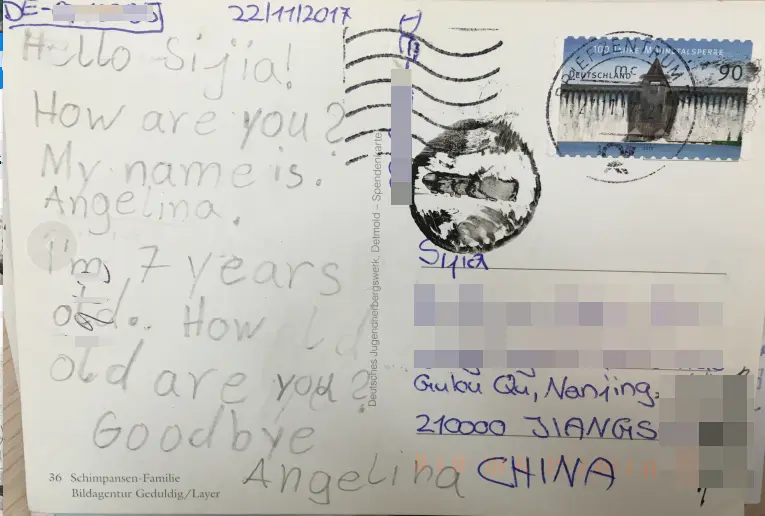 22/11/2017
Hello Sijia!
How are you?
My name is.
Angelina.
I'm 7 years
old. How
old are you?
Goodbye
Angelina
36 Schimpansen-Familie
Bildagentur Geduldig/Layer
Deutsches Jugendherbergswerk, Detmold – Spendenkarte
100 JAHRE MÖHNETALSPERRE
DEUTSCHLAND
90
BRIEFZENTRUM
Sijia
Gulou Qu, Nanjing,
210000 JIANGS
CHINA